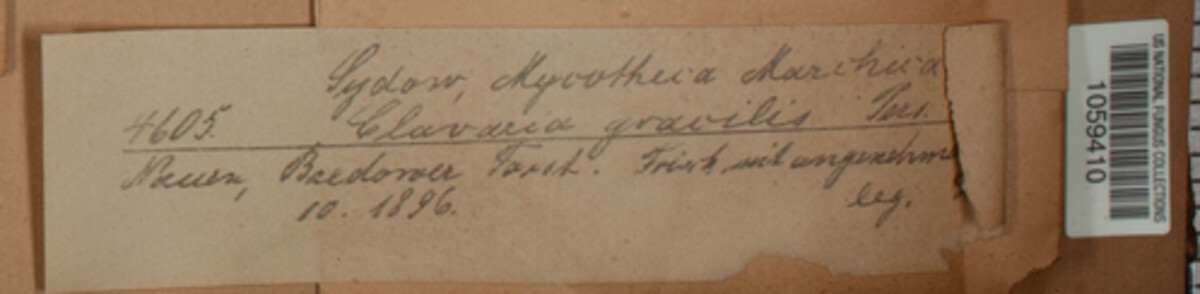 Sydow, Mycotheca Marchica
4605. Clavaria gracilis Pers.
Nauen, Bredower Forst. Frisch mit angenehme
10. 1896. leg.
US NATIONAL FUNGUS COLLECTIONS
1059410